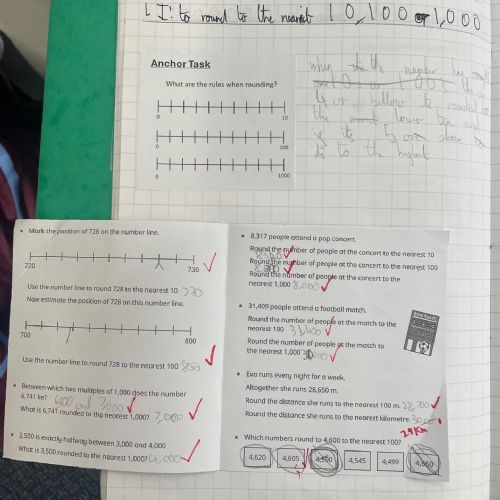 L.I: to round to the nearest 10, 100 or 1,000
Anchor Task
What are the rules when rounding?
0 10
0 100
0 1000
when the number has
or bellow its rounded
the lower
is its 5 or above
is to the highest
• Mark the position of 728 on the number line.
720 730
Use the number line to round 728 to the nearest 10 730
Now estimate the position of 728 on this number line.
700 800
Use the number line to round 728 to the nearest 100
• Between which two multiples of 1,000 does the number
6,741 lie? and 7,000
What is 6,741 rounded to the nearest 1,000? 7,000
• 3,500 is exactly halfway between 3,000 and 4,000
What is 3,500 rounded to the nearest 1,000? 4,000
• 8,317 people attend a pop concert.
Round the number of people at the concert to the nearest 10
Round the number of people at the concert to the nearest 100
Round the number of people at the concert to the
nearest 1,000 8,000
• 31,409 people attend a football match.
Round the number of people at the match to the
nearest 100 31,400
Round the number of people at the match to
the nearest 1,000
• Eva runs every night for a week.
Altogether she runs 28,650 m.
Round the distance she runs to the nearest 100 m. 28,700
Round the distance she runs to the nearest kilometre
29km
• Which numbers round to 4,600 to the nearest 100?
4,620 4,605 4,500 4,545 4,499 4,650